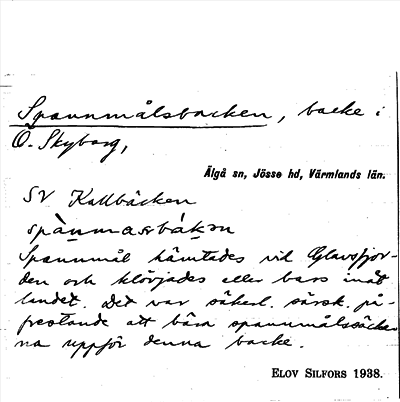 Spannmålsbacken, backe i
Ö. Skyborg,
Älgå sn, Jösse hd, Värmlands län.
SV Kallbäcken
Spannmål hämtades vid Glavsfjor-
den och klövjades eller bars inåt
landet. Det var säkerl. särsk. på-
frestande att bära spannmålssäckar-
na uppför denna backe.
ELOV SILFORS 1938.